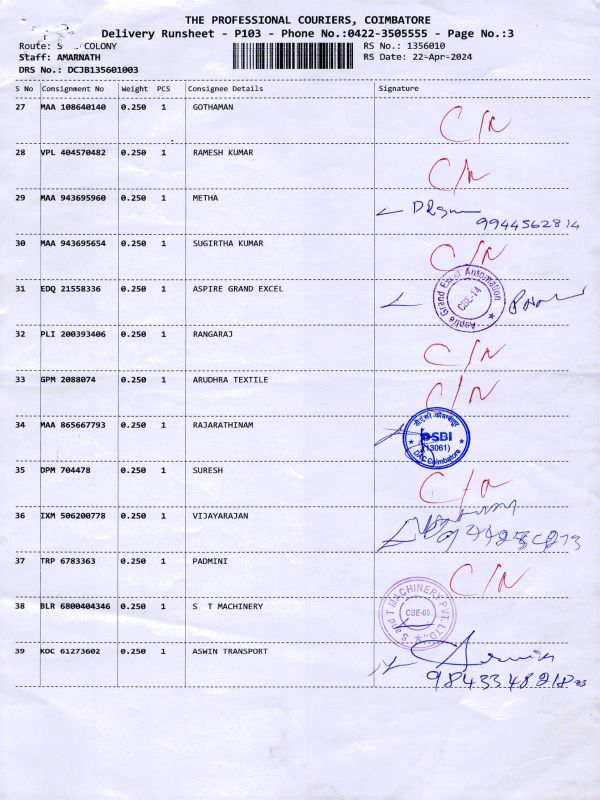 THE PROFESSIONAL COURIERS, COIMBATORE
Delivery Runsheet - P103 - Phone No.:0422-3505555 - Page No.:3
Route: S S COLONY RS No.: 1356010
Staff: AMARNATH RS Date: 22-Apr-2024
DRS No.: DCJB135601003
S No Consignment No Weight PCS Consignee Details Signature
27 MAA 108640140 0.250 1 GOTHAMAN C/N
28 VPL 404570482 0.250 1 RAMESH KUMAR C/N
29 MAA 943695960 0.250 1 METHA
9944562814
30 MAA 943695654 0.250 1 SUGIRTHA KUMAR C/N
31 EDQ 21558336 0.250 1 ASPIRE GRAND EXCEL Aspire Grand Excel Automation CBE-14
32 PLI 200393406 0.250 1 RANGARAJ C/N
33 GPM 2088074 0.250 1 ARUDHRA TEXTILE C/N
34 MAA 865667793 0.250 1 RAJARATHINAM SBI (13061) DAC Coimbatore
35 DPM 704478 0.250 1 SURESH C/N
36 IXM 506200778 0.250 1 VIJAYARAJAN
37 TRP 6783363 0.250 1 PADMINI C/N
38 BLR 6800404346 0.250 1 S T MACHINERY S and T MACHINERY PVT. LTD. CBE-05
39 KOC 61273602 0.250 1 ASWIN TRANSPORT